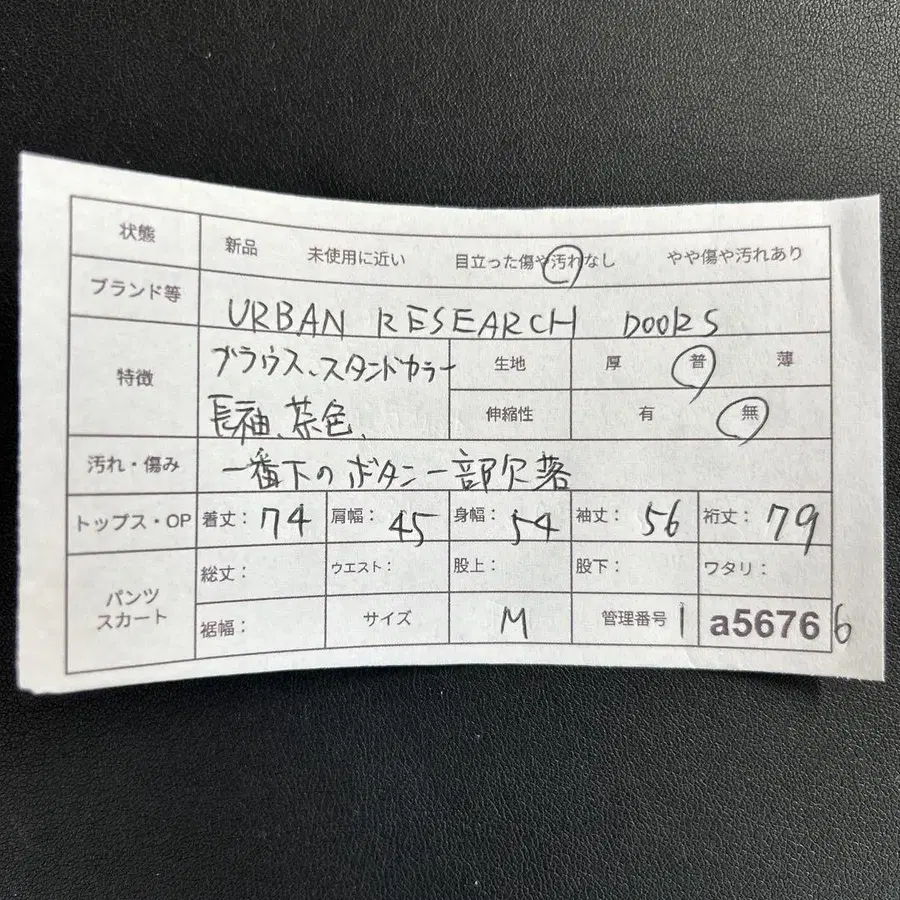 状態 新品 未使用に近い 目立った傷や汚れなし やや傷や汚れあり
ブランド等 URBAN RESEARCH DOORS
特徴 ブラウス、スタンドカラー 生地 厚 普 薄
長袖、茶色、 伸縮性 有 無
汚れ・傷み 一番下のボタン一部欠落
トップス・OP 着丈: 74 肩幅: 45 身幅: 54 袖丈: 56 裄丈: 79
パンツ スカート 総丈: ウエスト: 股上: 股下: ワタリ:
裾幅: サイズ M 管理番号 1 a5676 6